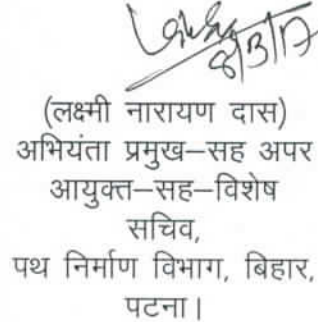 8/3/17
(लक्ष्मी नारायण दास)
अभियंता प्रमुख–सह अपर
आयुक्त–सह–विशेष
सचिव,
पथ निर्माण विभाग, बिहार,
पटना।